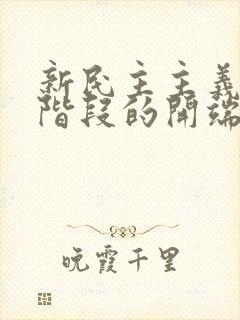 新民主主義
階段的開端
晚霞千里